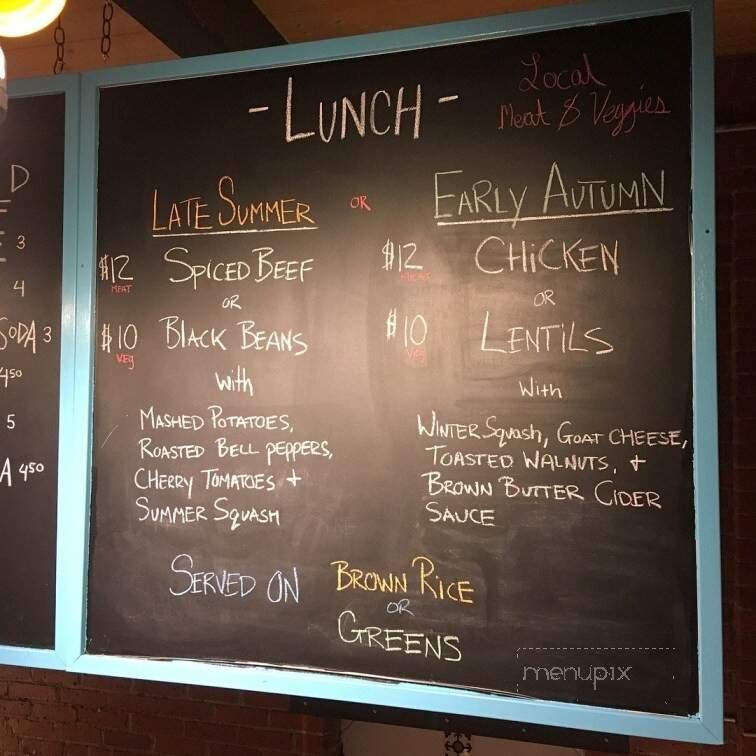 - LUNCH -
Local
Meat & Veggies
LATE SUMMER OR EARLY AUTUMN
$12 SPICED BEEF
MEAT
OR
$10 BLACK BEANS
VEG
with
MASHED POTATOES,
ROASTED BELL PEPPERS,
CHERRY TOMATOES +
SUMMER SQUASH
$12 CHICKEN
MEAT
OR
$10 LENTILS
VEG
With
WINTER SQUASH, GOAT CHEESE,
TOASTED WALNUTS, +
BROWN BUTTER CIDER
SAUCE
SERVED ON BROWN RICE
OR
GREENS
D
3
4
SODA 3
450
5
A 450
menupix